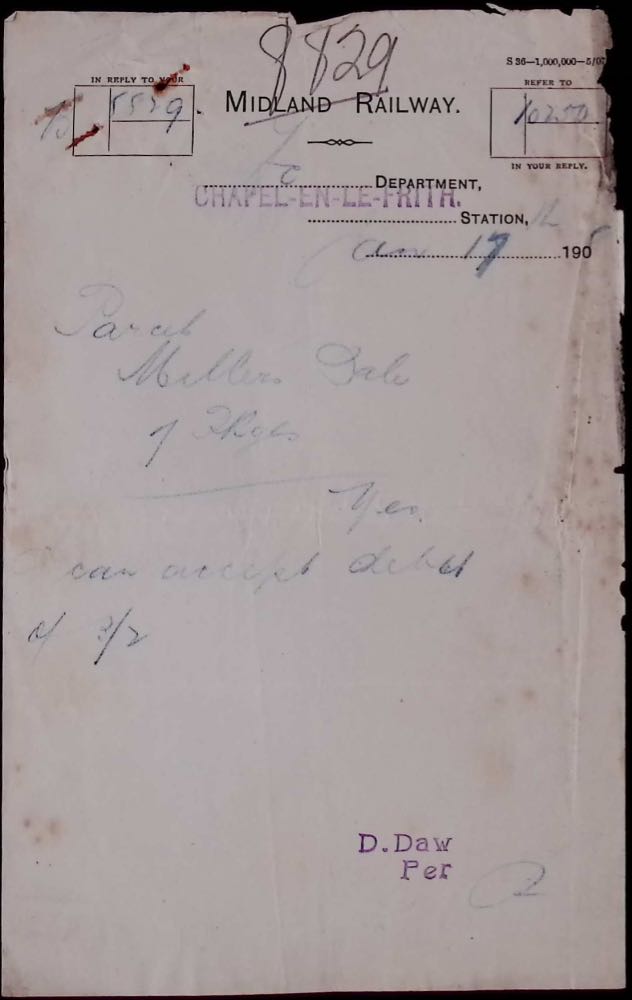 8829
S 36—1,000,000—5/0
IN REPLY TO YOUR
5539
MIDLAND RAILWAY.
REFER TO
10250
IN YOUR REPLY.
DEPARTMENT,
CHAPEL-EN-LE-FRITH.
STATION,
Jan 17 190
Parcels
Millers Dale
Yes.
can accept debit
of 3/2
D. Daw
Per